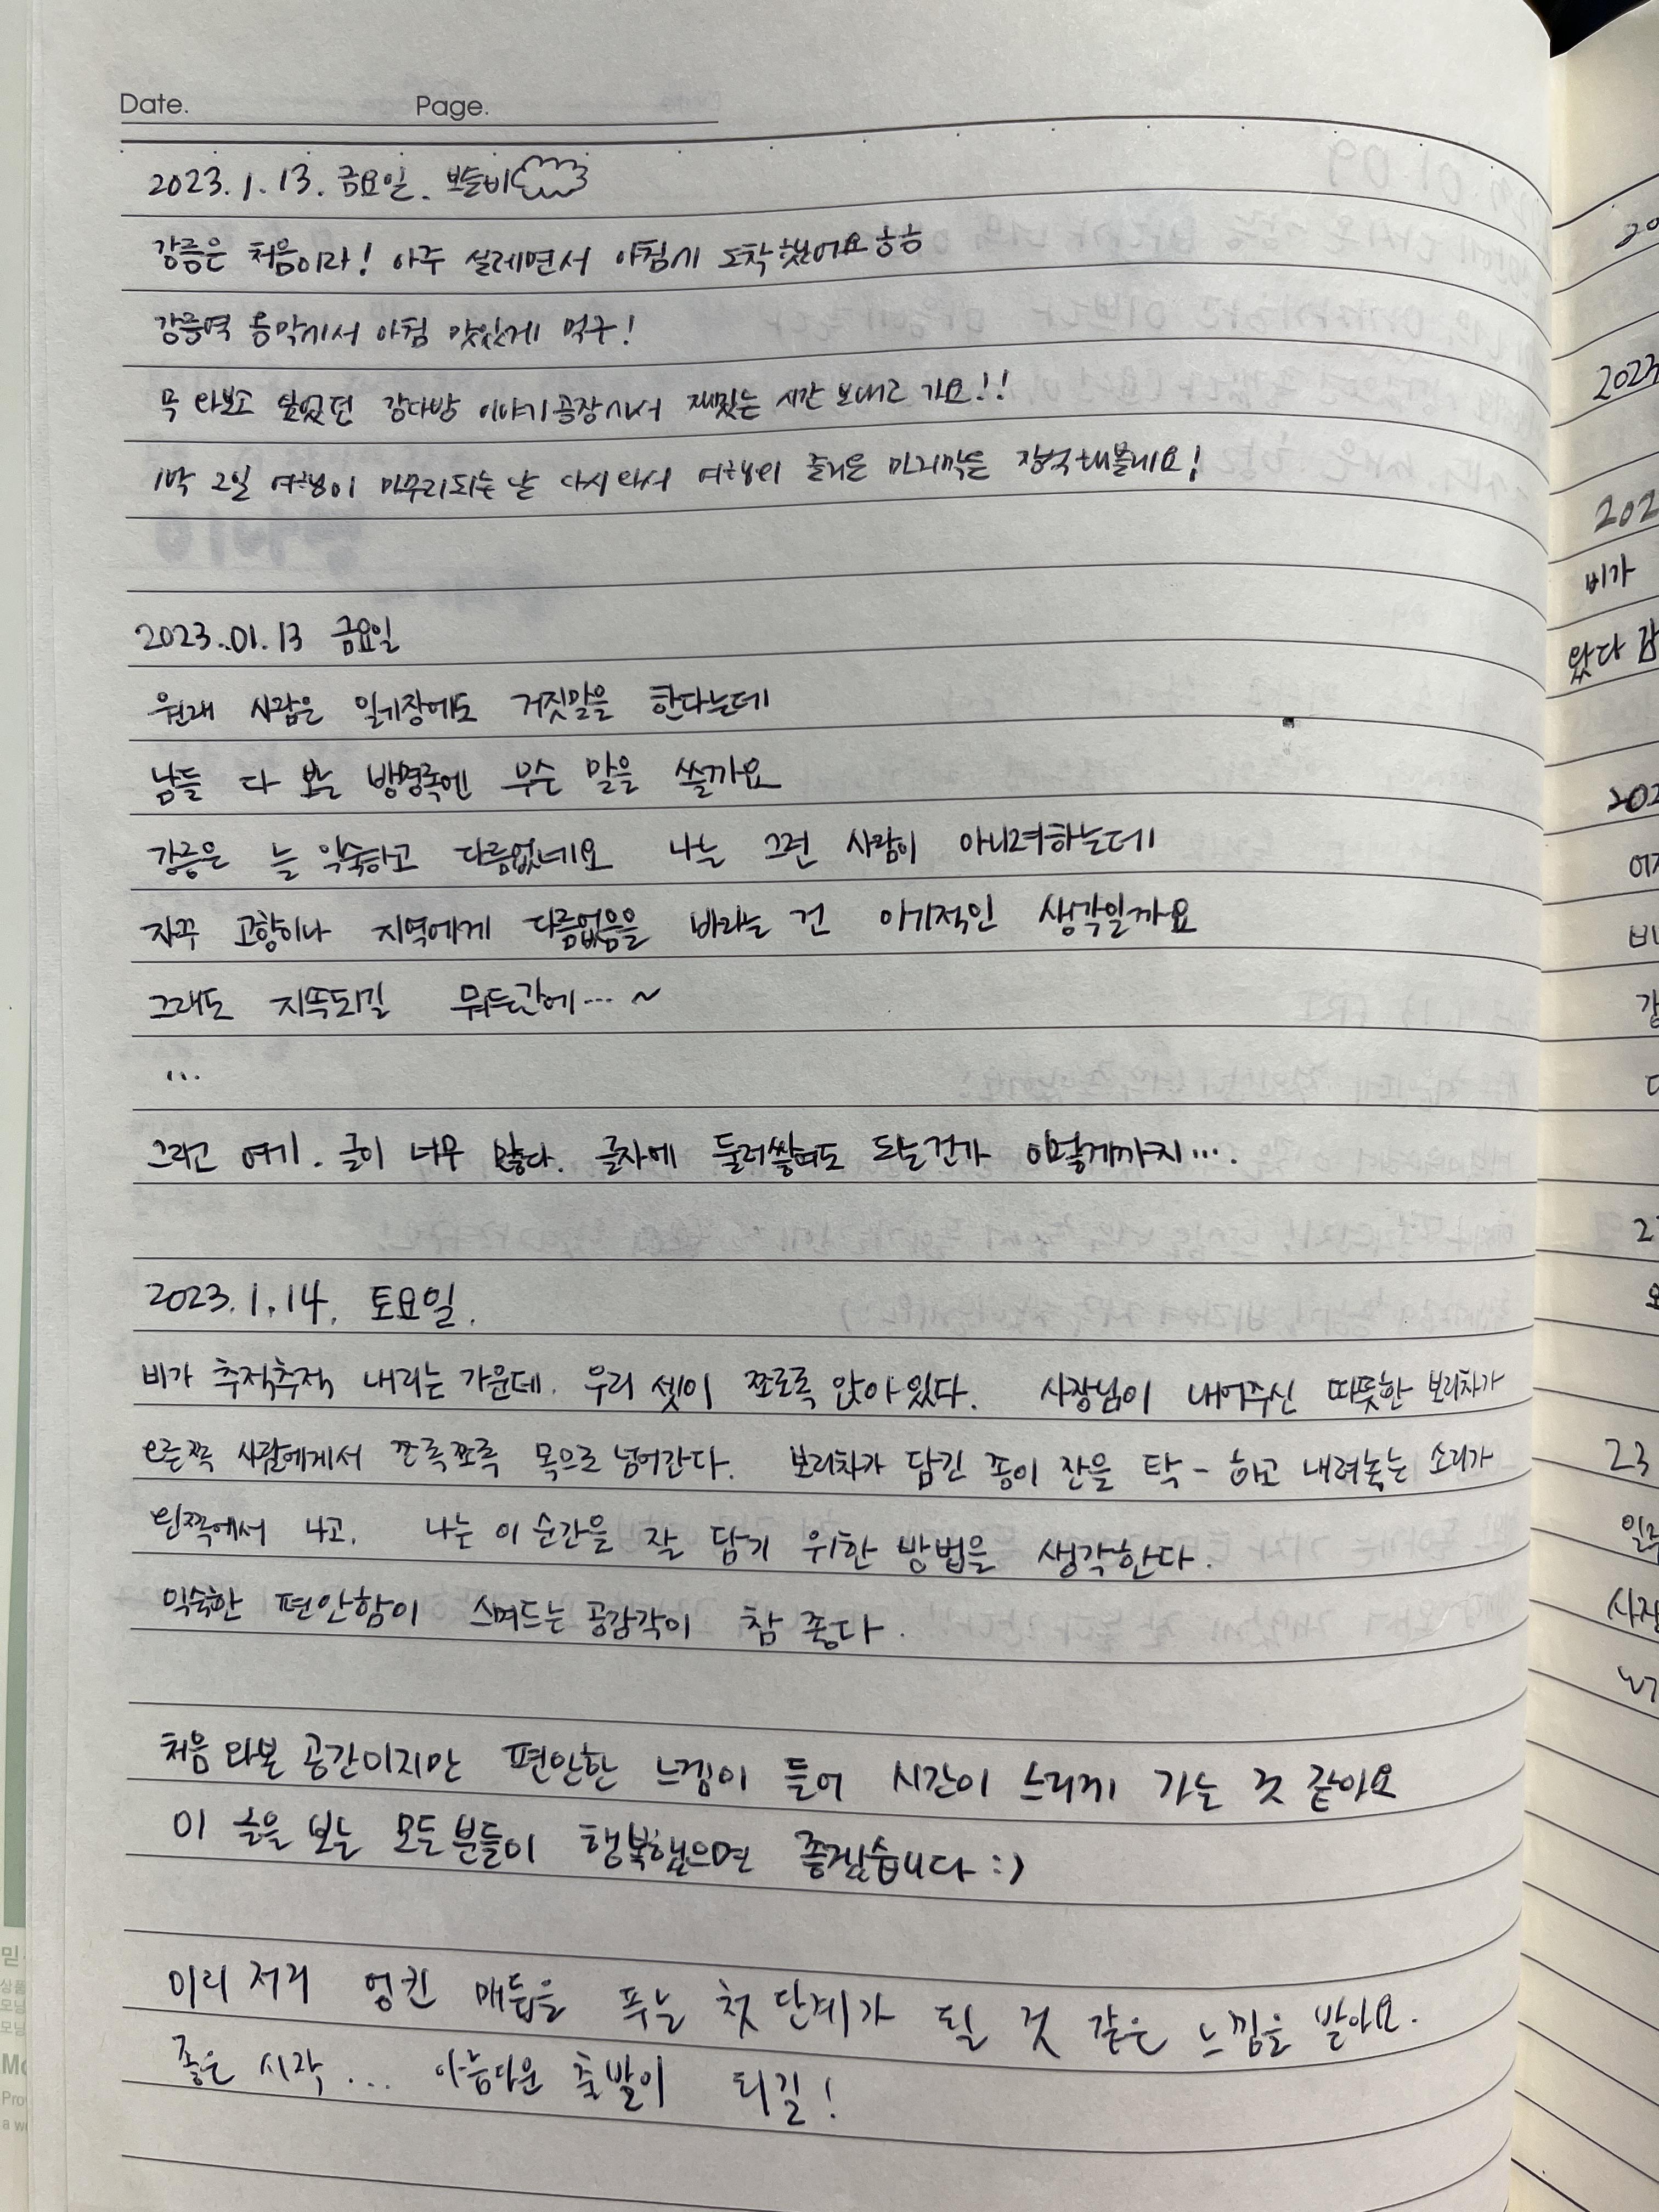 Date. Page.
2023. 1. 13. 금요일. 보슬비
강릉은 처음이라! 아주 설레면서 아침에 도착했어요ㅎㅎ
강릉역 옹막에서 아침 맛있게 먹구!
꼭 와보고 싶었던 강다방 이야기공장에서 재밌는 시간 보내고 가요!!
1박 2일 여행이 마무리되는 날 다시 와서 여행의 즐거운 마지막을 장식해볼래요!
2023.01.13 금요일
원래 사람은 일기장에도 거짓말을 한다는데
남들 다 보는 방명록엔 무슨 말을 쓸까요
강릉은 늘 익숙하고 다름없네요 나는 그런 사람이 아니려하는데
자꾸 고향이나 지역에게 다름없음을 바라는 건 이기적인 생각일까요
그래도 지속되길 뭐든간에… ~
...
그리고 여기. 글이 너무 많다. 글자에 둘러쌓여도 되는건가 이렇게까지….
2023. 1. 14. 토요일.
비가 추적추적 내리는 가운데. 우리 셋이 쪼로록 앉아있다. 사장님이 내어주신 따뜻한 보리차가
오른쪽 사람에게서 쪼록쪼록 목으로 넘어간다. 보리차가 담긴 종이 잔을 탁 - 하고 내려놓는 소리가
왼쪽에서 나고. 나는 이 순간을 잘 담기 위한 방법을 생각한다.
익숙한 편안함이 스며드는 공감각이 참 좋다.
처음 와본 공간이지만 편안한 느낌이 들어 시간이 느리게 가는 것 같아요
이 글을 보는 모든 분들이 행복했으면 좋겠습니다 :)
이리 저리 엉킨 매듭을 푸는 첫 단계가 될 것 같은 느낌을 받아요.
좋은 시작... 아름다운 출발이 되길!
비가
왔다